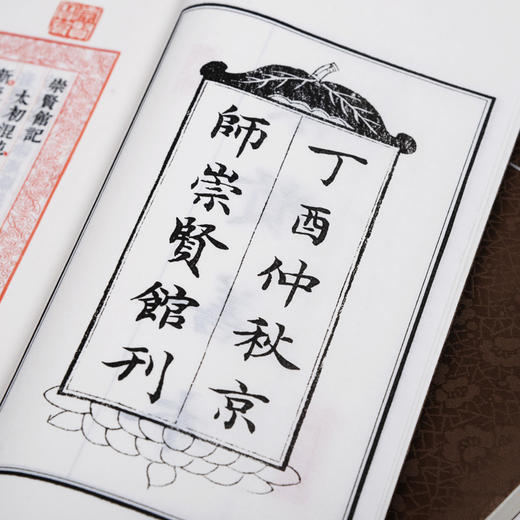 丁酉仲秋京
師崇賢館刊
崇賢館記
太初混沌